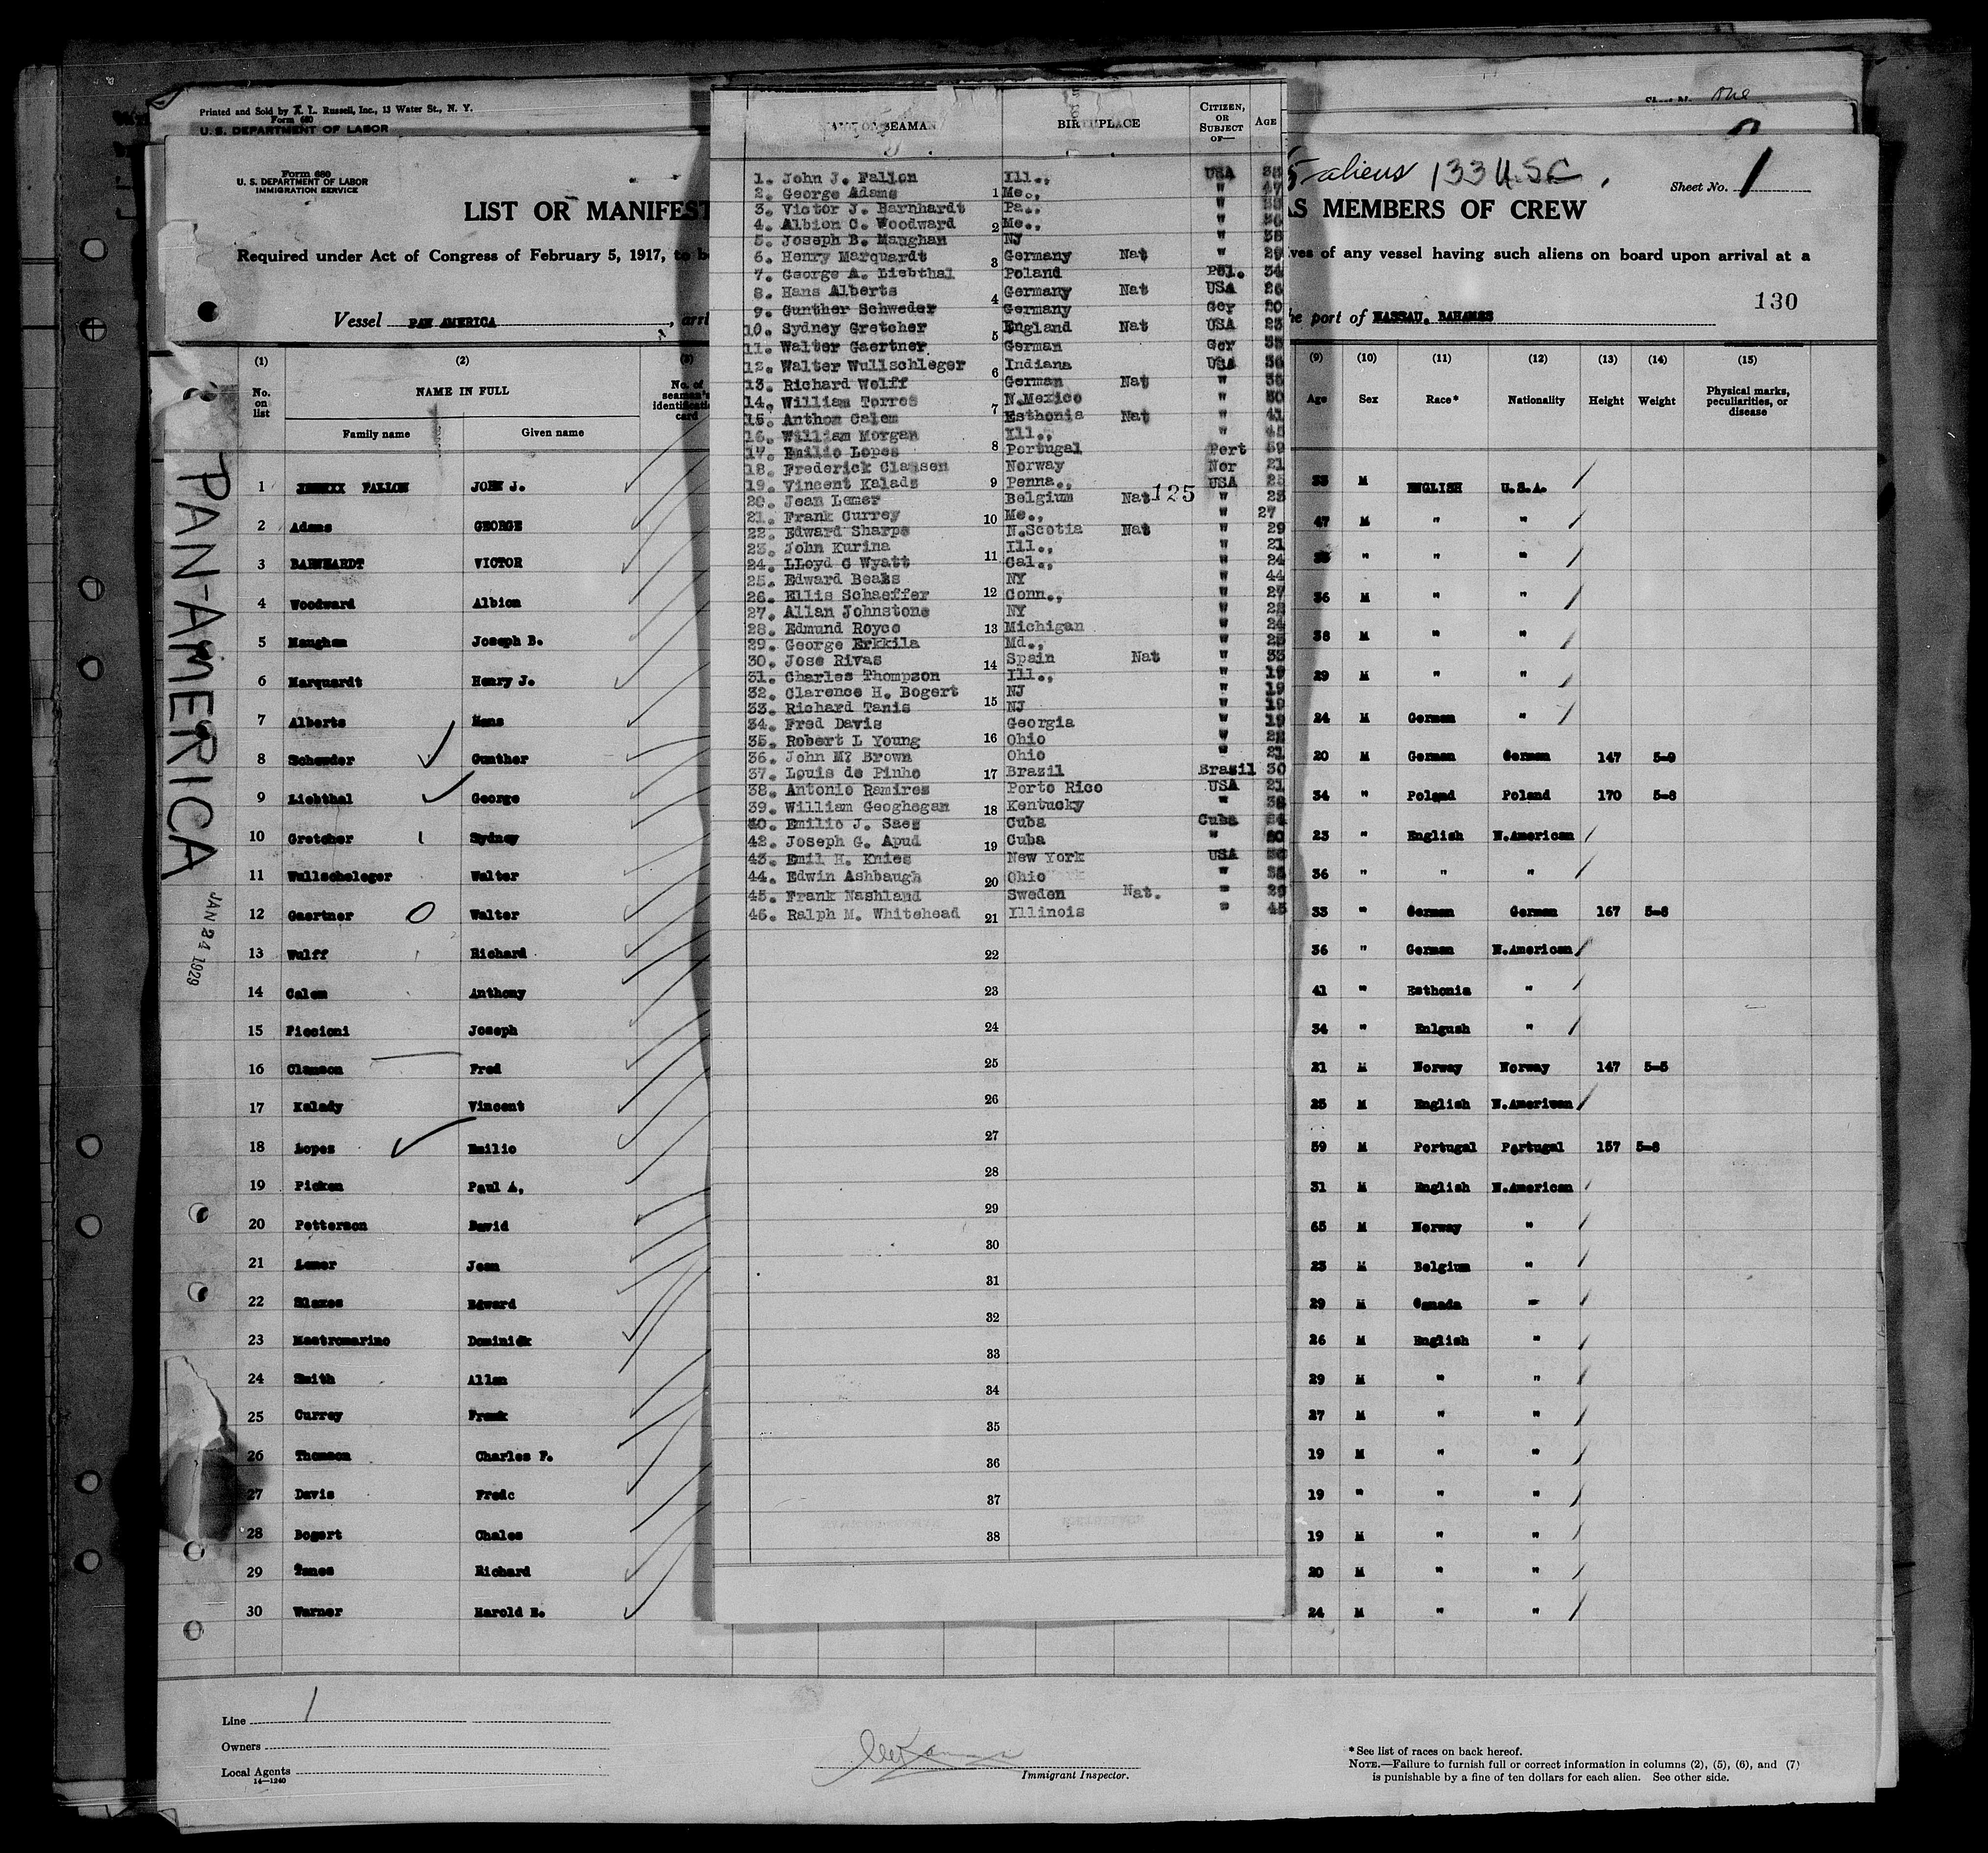 Printed and Sold by A. L. Russell, Inc., 13 Water St., N. Y.
Form 680
U. S. DEPARTMENT OF LABOR
One
Form 680
U. S. DEPARTMENT OF LABOR
IMMIGRATION SERVICE
aliens 133 U.S.C.
Sheet No. 1
LIST OR MANIFEST
AS MEMBERS OF CREW
Required under Act of Congress of February 5, 1917, to b
ves of any vessel having such aliens on board upon arrival at a
130
Vessel PAN AMERICA, arri
he port of NASSAU, BAHAMAS
PAN-AMERICA
JAN 24 1929
(1) (2) (3) (9) (10) (11) (12) (13) (14) (15)
No. on list NAME IN FULL No. of seaman's identificati card Age Sex Race* Nationality Height Weight Physical marks, peculiarities, or disease
Family name Given name
1 FALLON JOHN J. 33 M ENGLISH U.S.A.
2 Adams GEORGE 47 M " "
3 BARNHARDT VICTOR " " "
4 Woodward Albion 36 M " "
5 Maughan Joseph B. 38 M " "
6 Marquardt Henry J. 29 M " "
7 Alberts Hans 24 M German "
8 Schewder Gunther 20 M German German 147 5-9
9 Liebthal George 34 " Poland Poland 170 5-8
10 Gretcher Sydney 23 " English N.American
11 Wullscheleger Walter 36 " " "
12 Gaertner Walter 33 " German German 167 5-8
13 Wulff Richard 36 " German N.American
14 Calem Anthony 41 " Esthonia "
15 Piccioni Joseph 34 " Enlgush "
16 Clamson Fred 21 M Norway Norway 147 5-5
17 Kalady Vincent 25 M English N.Ameriwan
18 Lopes Emilio 59 M Portugal Portugal 157 5-8
19 Picken Paul A, 31 M English N.American
20 Petterson David 65 M Norway "
21 Lemer Jean 23 M Belgium "
22 Edward 29 M Canada "
23 Mastromarino Dominick 26 M English "
24 Smith Allan 29 M " "
25 Currey Frank 27 M " "
26 Thomson Charles F. 19 M " "
27 Davis Fredc 19 " " "
28 Bogert Chales 19 M " "
29 Tanes Richard 20 M " "
30 Warner Harold E. 24 M " "
NAME OF SEAMAN BIRTHPLACE CITIZEN, OR SUBJECT OF— AGE
1. John J. Fallon Ill., USA 33
2. George Adams 1 Me., " 47
3. Victor J. Barnhardt Pa., "
4. Albion C. Woodward 2 Me., " 36
5. Joseph B. Maughan NJ " 38
6. Henry Marquardt 3 Germany Nat " 29
7. George A. Liebthal Poland Pol. 34
8. Hans Alberts 4 Germany Nat USA 26
9. Gunther Schweder Germany Ger 20
10. Sydney Gretcher 5 England Nat USA 23
11. Walter Gaertner German Ger 33
12. Walter Wullschleger 6 Indiana USA 36
13. Richard Wolff German Nat " 36
14. William Torres 7 N.Mexico " 30
15. Anthom Calem Esthonia Nat " 41
16. William Morgan Ill., " 45
17. Emilio Lopes 8 Portugal Port 59
18. Frederick Clausen Norway Nor 21
19. Vincent Kalads 9 Penna., USA 25
20. Jean Lemer Belgium Nat 125 " 23
21. Frank Currey 10 Me., " 27
22. Edward Sharpe N.Scotia Nat " 29
23. John Kurina 11 Ill., " 21
24. LLoyd C Wyatt Cal., " 24
25. Edward Beaks NY " 44
26. Ellis Schaeffer 12 Conn., " 27
27. Allan Johnstone NY "
28. Edmund Royce 13 Michigan " 24
29. George Erkkila Md., " 25
30. Jose Rivas 14 Spain Nat " 33
31. Charles Thompson Ill., " 19
32. Clarence H. Bogert NJ " 19
33. Richard Tanis 15 NJ " 19
34. Fred Davis Georgia " 19
35. Robert L Young 16 Ohio " 22
36. John M? Brown Ohio " 21
37. Louis de Pinho 17 Brazil Brazil 30
38. Antonio Ramires Porto Rico USA 21
39. William Geoghegan 18 Kentucky " 38
40. Emilio J. Saez Cuba Cuba 24
42. Joseph G. Apud 19 Cuba "
43. Emil H. Knies New York USA
44. Edwin Ashbaugh 20 Ohio "
45. Frank Nashland Sweden Nat. " 29
46. Ralph M. Whitehead 21 Illinois " 45
22
23
24
25
26
27
28
29
30
31
32
33
34
35
36
37
38
Line 1
Owners
Local Agents
14—1240
Immigrant Inspector.
* See list of races on back hereof.
NOTE.—Failure to furnish full or correct information in columns (2), (5), (6), and (7)
is punishable by a fine of ten dollars for each alien. See other side.